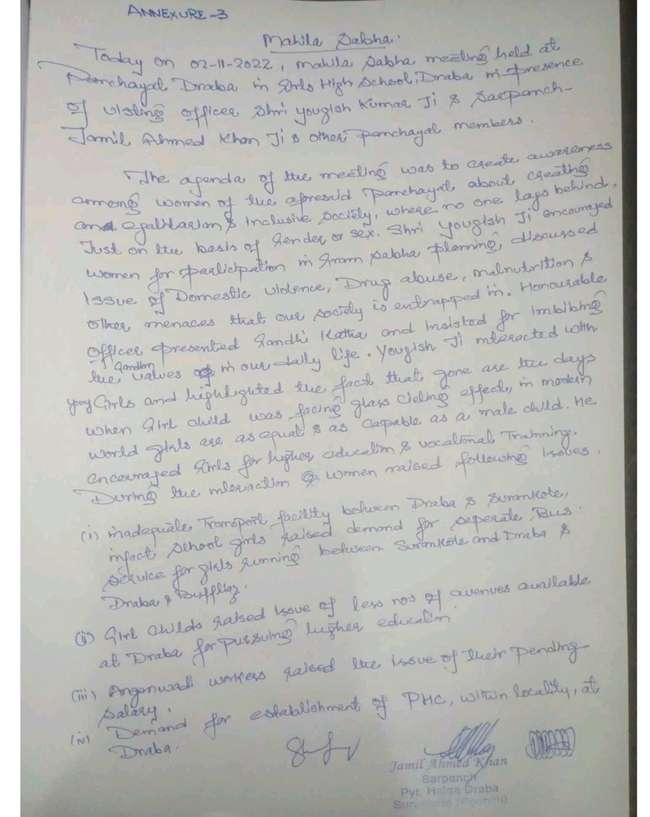 ANNEXURE-3
Mahila Sabha.
Today on 02-11-2022, Mahila Sabha meeting held at
Panchayat Draba in Girls High School, Draba in presence
of visiting officer Shri Yougish Kumar Ji & Sarpanch-
Jamil Ahmed Khan Ji & other panchayat members.
The agenda of the meeting was to create awareness
among women of the aforesaid Panchayat about creating
and egalitarian & inclusive society, where no one lags behind,
Just on the basis of Gender or sex. Shri Yougish Ji encouraged
women for participation in Gram Sabha planning, discussed
Issue of Domestic violence, Drug abuse, malnutrition &
other menaces that our society is entrapped in. Honourable
officer presented Gandhi Katha and insisted for imbibing
the Gandhian values in our daily life. Yougish Ji interacted with
young Girls and highlighted the fact that gone are the days
when Girl child was facing glass cieling effect, in modern
world girls are as equal & as capable as a male child. He
encouraged Girls for higher education & vocational Training.
During the interaction women raised following issues.
(i) inadequate Transport facility between Draba & Surankote,
infact school girls raised demand for seperate Bus
service for girls running between Surankote and Draba &
Draba & Buffliaz.
(ii) Girl childs raised issue of less nos of avenues available
at Draba for Pursuing higher education.
(iii) Anganwadi workers raised the issue of their pending
salary.
(iv) Demand for establishment of PHC, within locality, at
Draba.
Jamil Ahmed Khan
Sarpanch
Pyt. Halqa Draba
Surankote (Poonch)